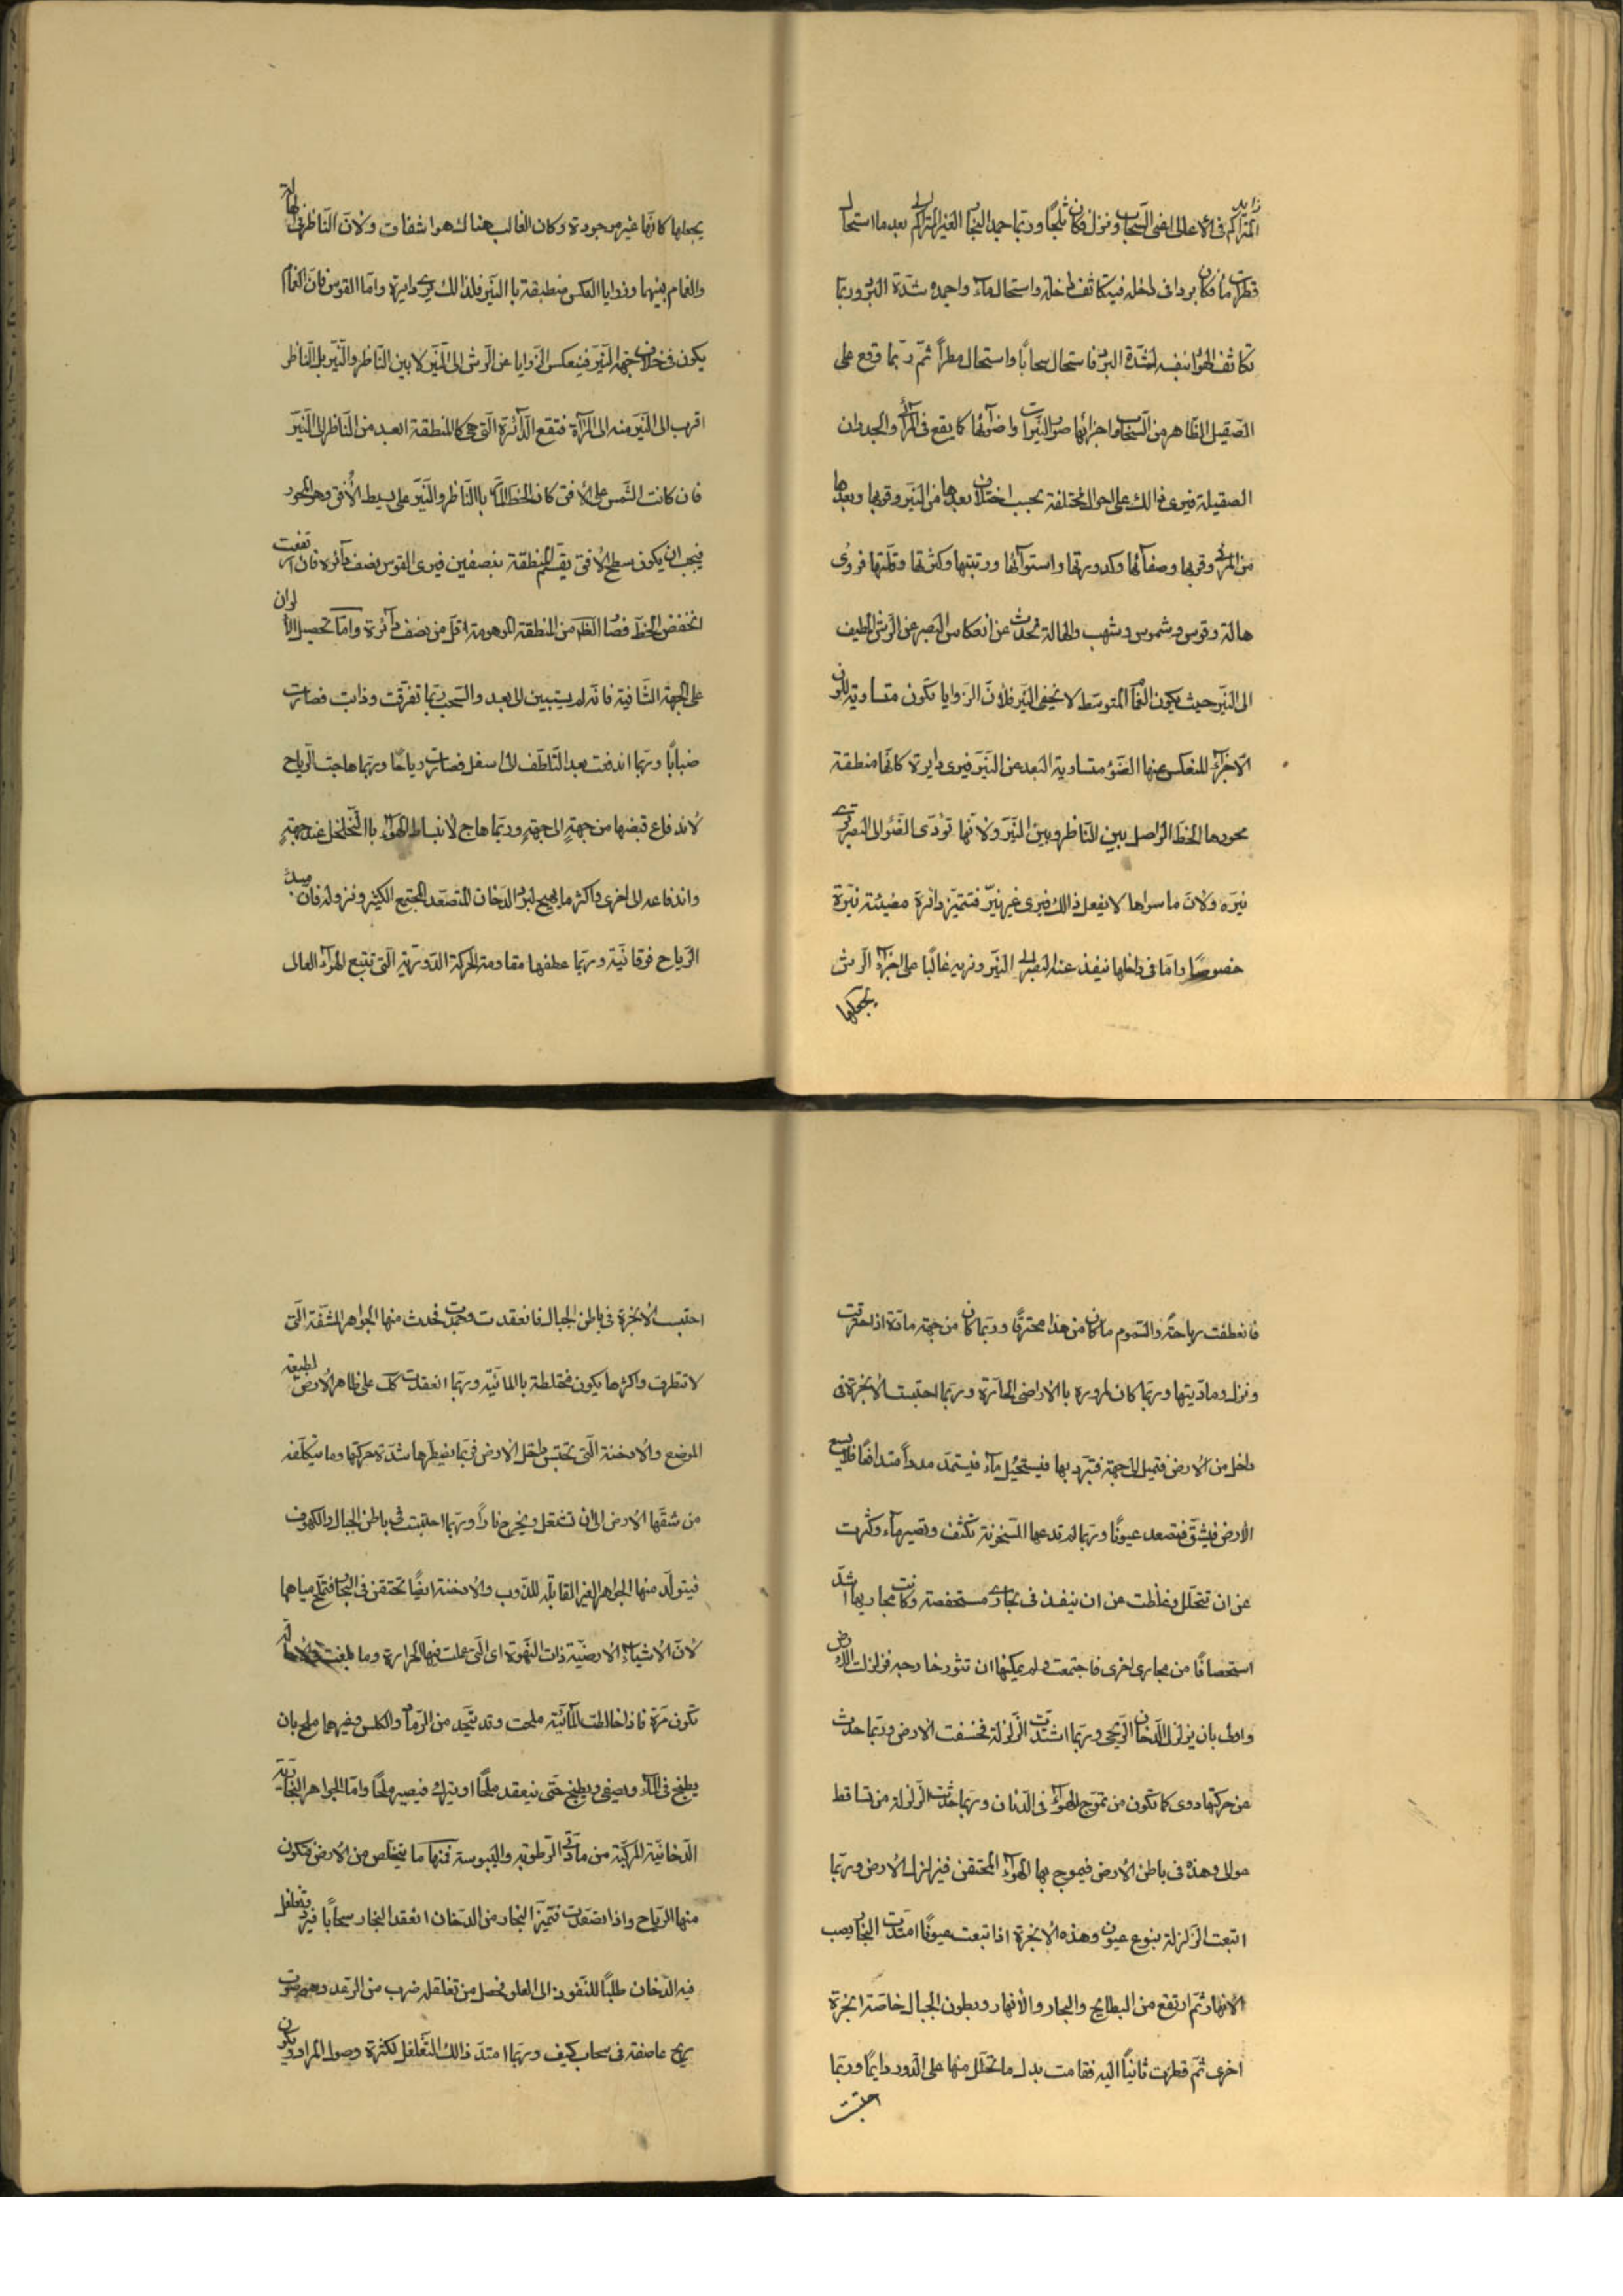 المتراكم فى الاعالى اعنى السحاب ونزل فكان ثلجًا وربّما جمد البخار الغير المتراكم بعد ما استحال
قطرات ماء فكان بردا فى داخله فيتكاثف داخله واستحال ماء واجمده شدّة البرد وربّما
تكاثف الهواء بنفسه لشدّة البرد فاستحال سحابًا واستحال مطراً ثمّ ربّما وقع على
الصقيل الظاهر من السحاب واجزائها صور النيّرات واضوائها كما يقع فى المرائى والجدران
الصقيلة فيرى ذالك على احوال مختلفة بحسب اختلاف بعدها من النيّر وقربها وبعدها
من المرئى وقربها وصفائها وكدورتها واستوائها ورتبتها وكثرتها وقلّتها فرؤى
هالة وقوس وشموس وشهب والهالة تحدث عن انعكاس البصر عن الرش المطيف
الى النيّر حيث يكون الغمام المتوسّط لا يخفى النيّر فلأنّ الزوايا تكون متساوية للون
الاجزاء المنعكس عنها الضوء متساوية البعد عن النيّر فيرى دايرة كانّها منطقة
محورها الخطّ الواصل بين الناظر وبين النيّر ولانّها تؤدّى الضوء الى البصر ترى
نيّره ولانّ ما سواها لا يفعل ذالك فيرى غير نيّر فتتميّز دائرة مضيئة نيّرة
خصوصًا وامّا فى داخلها ينفذ عنه البصر الى النيّر ونريه غالبًا على اجزاء الرش
يجعلها
يجعلها كانّها غير موجودة وكان الغالب هناك هواء شفاف ولانّ الناظر فى الهالة
والغمام بينهما وزوايا العكس منطبقة با النيّر فلذالك يرى دايرة وامّا القوس فان الغمام
يكون فى خلاف جهة النيّر فينعكس الزوايا عن الرش الى النيّر لا بين الناظر والنيّر بل الناظر
اقرب الى النيّر منه الى المرآة فتقع الدائرة الّتى هى كالمنطقة ابعد من الناظر الى النيّر
فان كانت الشمس على الافق كان الخط المارّ با الناظر والنيّر على بسيط الأفق وهو المحور
فيجب ان يكون سطح الافق يقسم المنطقة بنصفين فيرى القوس نصف دائره فان ارتفعت
انخفض الخطّ فصار الظاهر من المنطقة الموهومة اقلّ من نصف دائرة وامّا تحصيل الالوان
على الجهة الشافية فانّه لم يستبين لى بعد والسحب ربّما تفرّقت وذابت فصارت
ضبابًا وربّما اندفعت بعد التلطّف الى اسفل فصارت رياحًا وربّما هاجت الرياح
لاندفاع قبضها من جهةٍ الى جهةٍ وربّما هاج لانبساط الهواء با التخلخل عند جهةٍ
واندفاعه الى اخرى واكثر ما يهيج لبرد الدخان المتصعّد المجتمع الكثير ونزوله فان مبدء
الرياح فوقانيّة وربّما عطفها مقاومة الحركة الدوريّة الّتى تتبع الهواء العالى
فانعطفت رياحًا والسموم ما كان من هذا محترقًا وربّما كان من جهة مادّة اذا احترقت
ونزل رماديتها وربّما كان لمروره با الاراضى الحارّة وربّما احتبست الابخرة فى
داخل من الارض فتميل الى جهة فتبرد بها فيستحيل ماء فيستمدّ مدداً متدافعًا فلا يسع
الارض فيشقّ فتصعد عيونًا وربّما لم تدعها السخونة تكثف وتصير ماء وكثرت
عن ان تتحلّل وغلظت عن ان ينفذ فى مجارى مستحفصة وكانت مجاريها اشدّ
استحصافًا من مجارى اخرى فاجتمعت ولم يمكنها ان تثور خارجه فزلزلت الارض
واولى بان يزلزل الدخان الريحى وربّما اشتدّت الزلزلة فخسفت الارض وربّما حدث
عن حركتها دوى كما تكون من تموّج الهواء فى الدنان وربّما حدثت الزلزلة من تساقط
عوالى وهذه فى باطن الارض فيموج بها الهواء المحتقن فيزلزل الارض وربّما
اتبعت الزلزلة نبوع عيون وهذه الابخرة اذا نبعت عيونًا امتدّت البحار يصب
الانهار ثمّ ارتفع من البطايح والبحار والانهار وبطون الجبال خاصّة ابخرة
اخرى ثمّ قطرت ثانيًا اليه فقامت بدل ما تحلّل منها على الدور دايمًا وربّما
احتبست
احتبست الابخرة فى باطن الجبال فانعقدت وجمدت فحدث منها الجواهر المشفّة الّتى
لا تتطرق واكثرها يكون مختلطة با المائيّة وربّما انعقدت كك على ظاهر الارض لطبيعة
الموضع والادخنة الّتى تحتبس داخل الارض فربّما يضطرها شدّة حركتها وما يتكلّفه
من شقّها الارض الى ان تشتعل ويخرج نارًا وربّما احتبست فى باطن الجبال والكهوف
فيتولّد منها الجواهر الغير القابلة للذوب والادخنة ايضًا تحتقن فى البحار فتملح مياهها
لانّ الاشياء الارضيّة ذات النهوة اى الّتى عملت فيها الحرارة وما بلغت
تكون مرّة فاذا خالطت المائيّة ملحت وقد يتّخذ من الرماد والكلس وغيرهما ملح بان
يطبخ فى الماء ويصفى ويطبخ حتّى ينعقد ملحًا او يترك فيصير ملحًا وامّا الجواهر البخاريّة
الدخانيّة المركّبة من مادّتى الرطوبة واليبوسة فمنها ما يتخلّص من الارض فتكون
منها الرياح واذا تصعّدت فتميّز البخار من الدخان انعقد البخار سحابًا فيبرد وتغلغل
فيه الدخان طلبًا للنفوذ الى العلو فحصل من تغلغله ضرب من الرعد وهو صوت
ريح عاصفة فى سحاب كثيف وربّما امتدّ ذالك التغلغل لكثرة وصول المراد ويكون